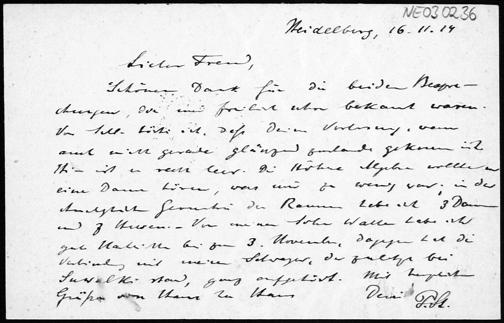 NE030236
Heidelberg, 16.11.14
Lieber Freund,
Schönen Dank für die beiden Bespre-
chungen, die mir freilich schon bekannt waren.
ist, dass Deine Vorlesung, wenn
auch nicht gerade glänzend zustande gekommen ist
Hier ist es recht leer. Die Höhere Algebra wollte nur
eine Dame hören, was mir zu wenig war; in der
Geometrie des Raumes habe ich 3 Damen
und 3 Herren. - Von meinem Sohn Walter habe ich
gute Nachrichten bis zum 3. November, dagegen hat die
Verbindung mit meinem Schwager, der zuletzt bei
Suwalki stand, ganz aufgehört. Mit herzlichen
Grüßen von Haus zu Haus Dein